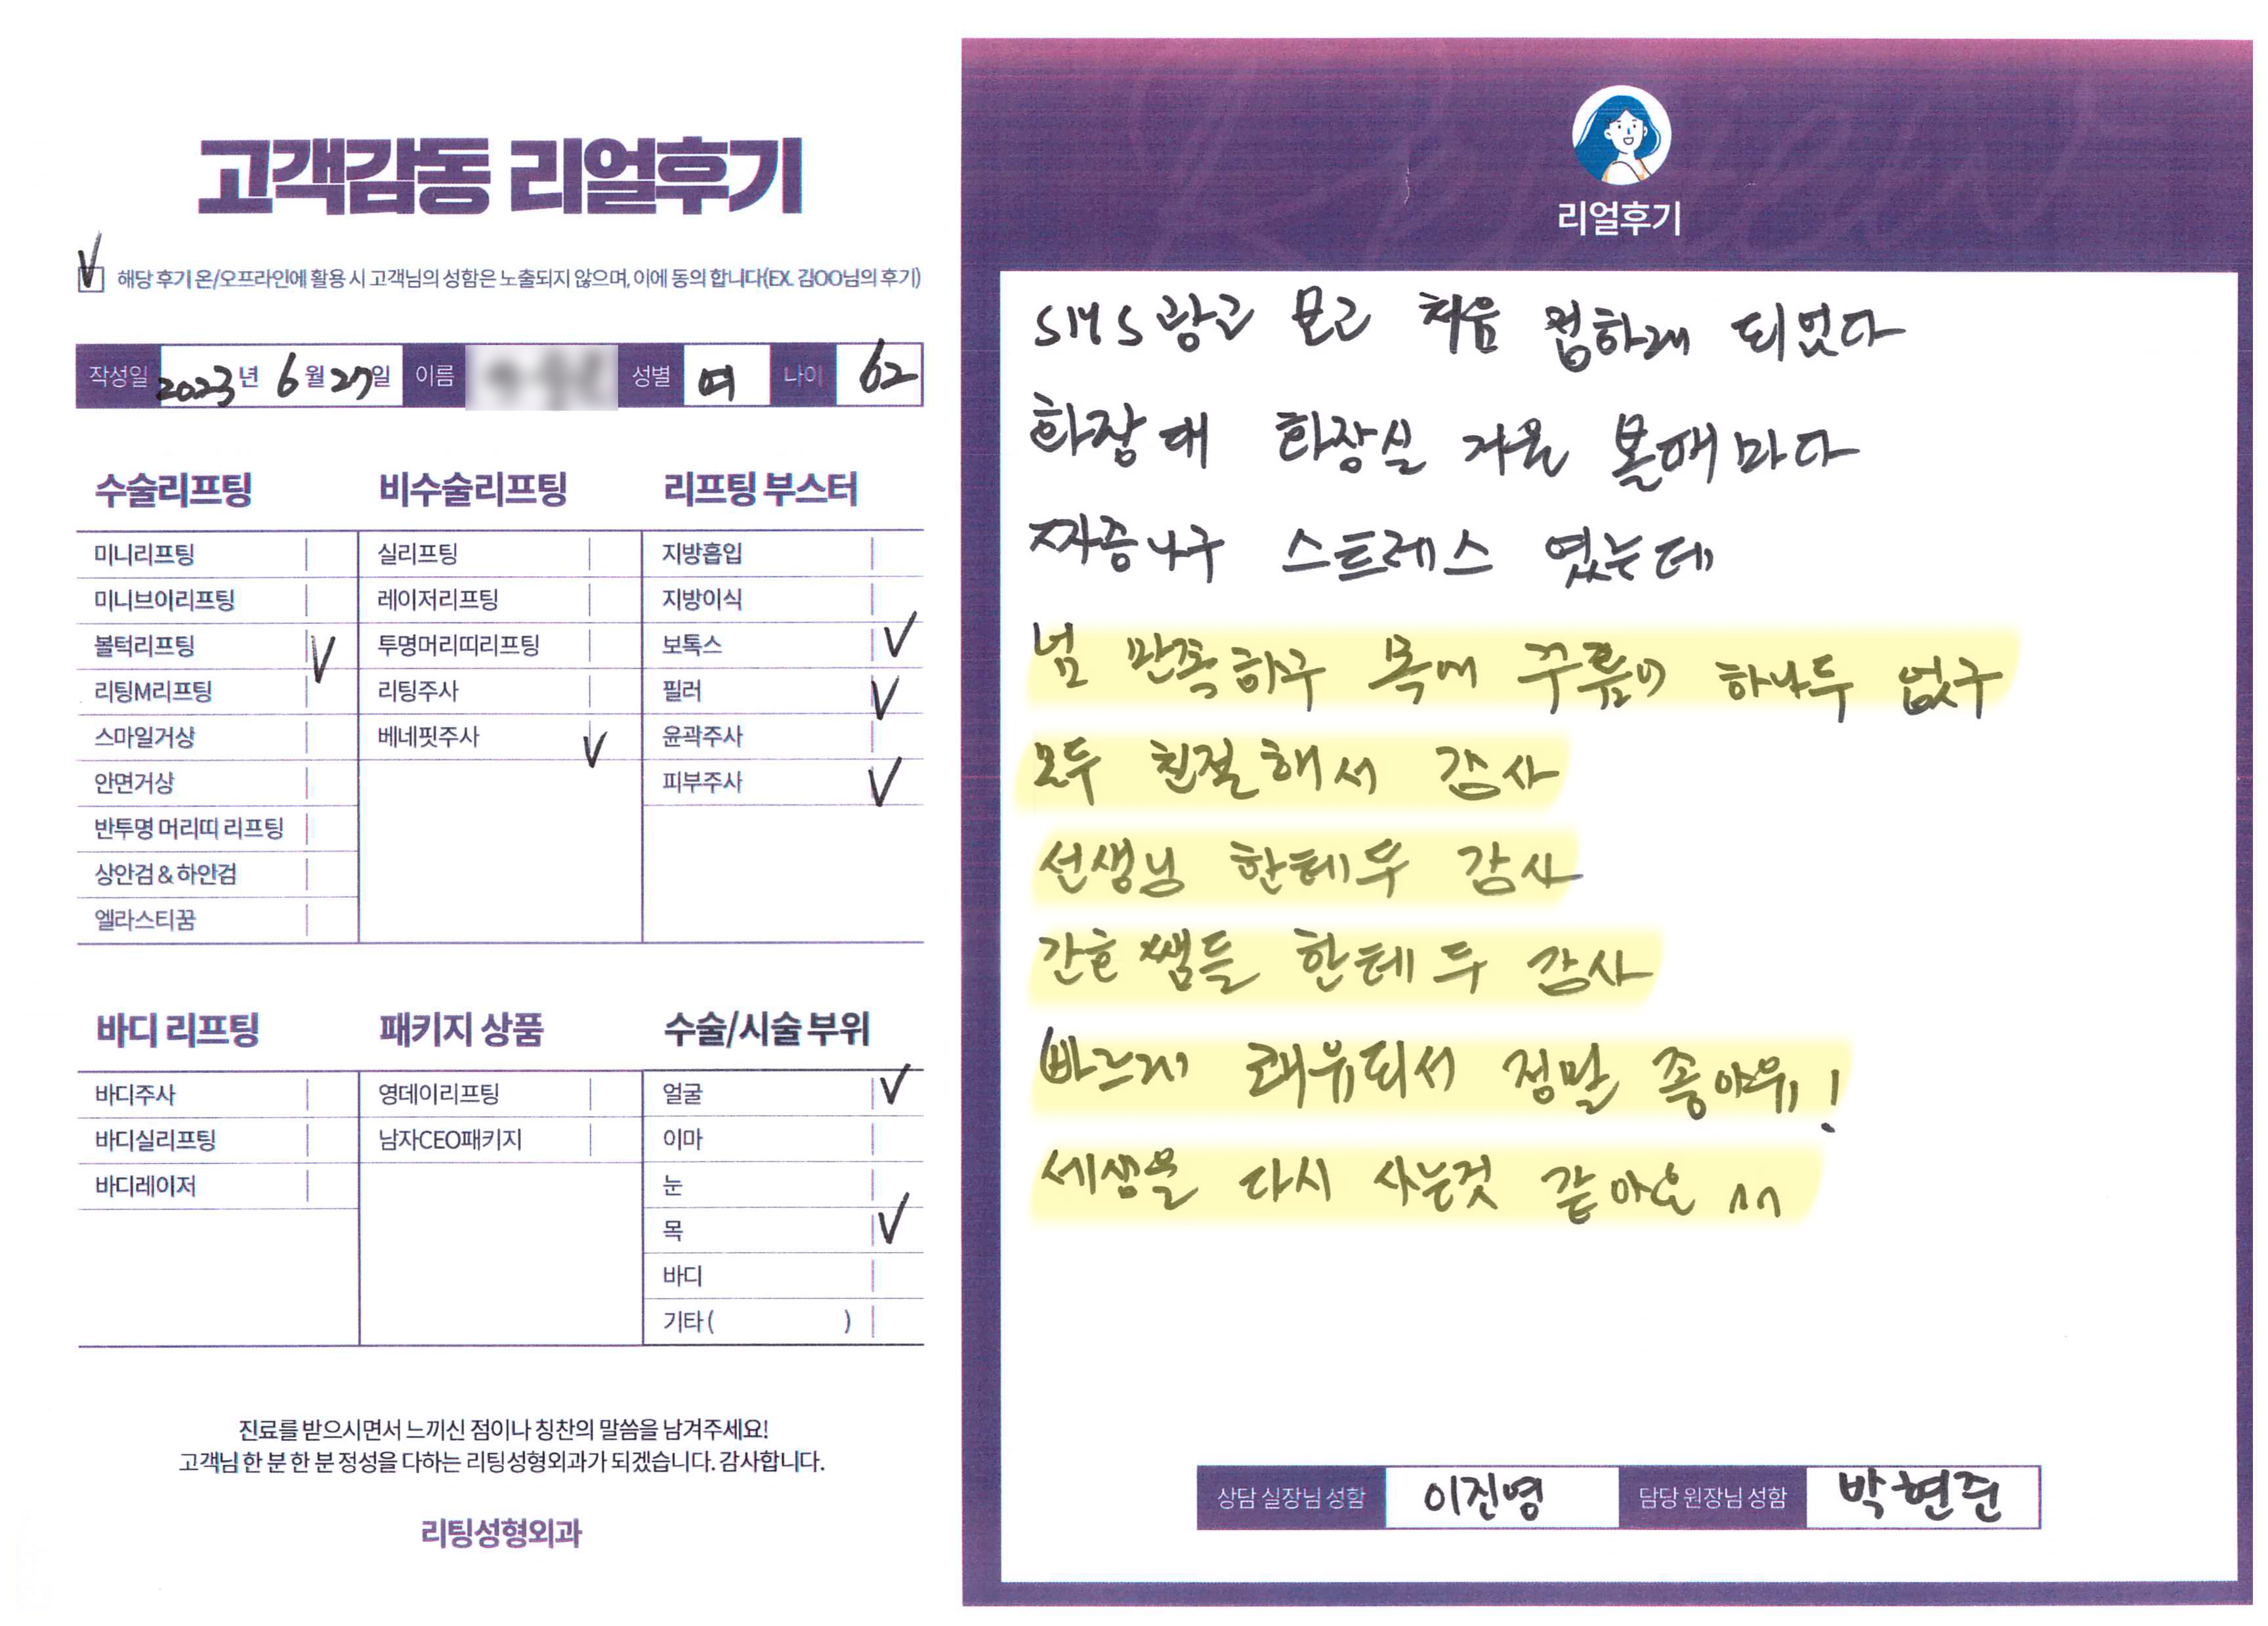 고객감동 리얼후기
해당 후기 온/오프라인에 활용 시 고객님의 성함은 노출되지 않으며, 이에 동의 합니다(EX. 김OO님의 후기)
작성일 2023년 6월 27일 이름 성별 여 나이 62
수술리프팅
미니리프팅
미니브이리프팅
볼턱리프팅
리팅M리프팅
스마일거상
안면거상
반투명 머리띠 리프팅
상안검 & 하안검
엘라스티꿈
비수술리프팅
실리프팅
레이저리프팅
투명머리띠리프팅
리팅주사
베네핏주사
리프팅 부스터
지방흡입
지방이식
보톡스
필러
윤곽주사
피부주사
바디 리프팅
바디주사
바디실리프팅
바디레이저
패키지 상품
영데이리프팅
남자CEO패키지
수술/시술 부위
얼굴
이마
눈
목
바디
기타 ( )
진료를 받으시면서 느끼신 점이나 칭찬의 말씀을 남겨주세요!
고객님 한 분 한 분 정성을 다하는 리팅성형외과가 되겠습니다. 감사합니다.
리팅성형외과
리얼후기
SMS 광고 보고 처음 되었다
화장대 화장실 거울 볼때마다
짜증나구 스트레스 였는데
넘 만족하구 목에 하나두 없구
모두 친절해서 감사
선생님 한테두 감사
간호쌤들 한테두 감사
빠르게 쾌유되서 정말
세상을 다시 사는것 같아요 ^^
상담 실장님 성함 이진영 담당 원장님 성함 박현준